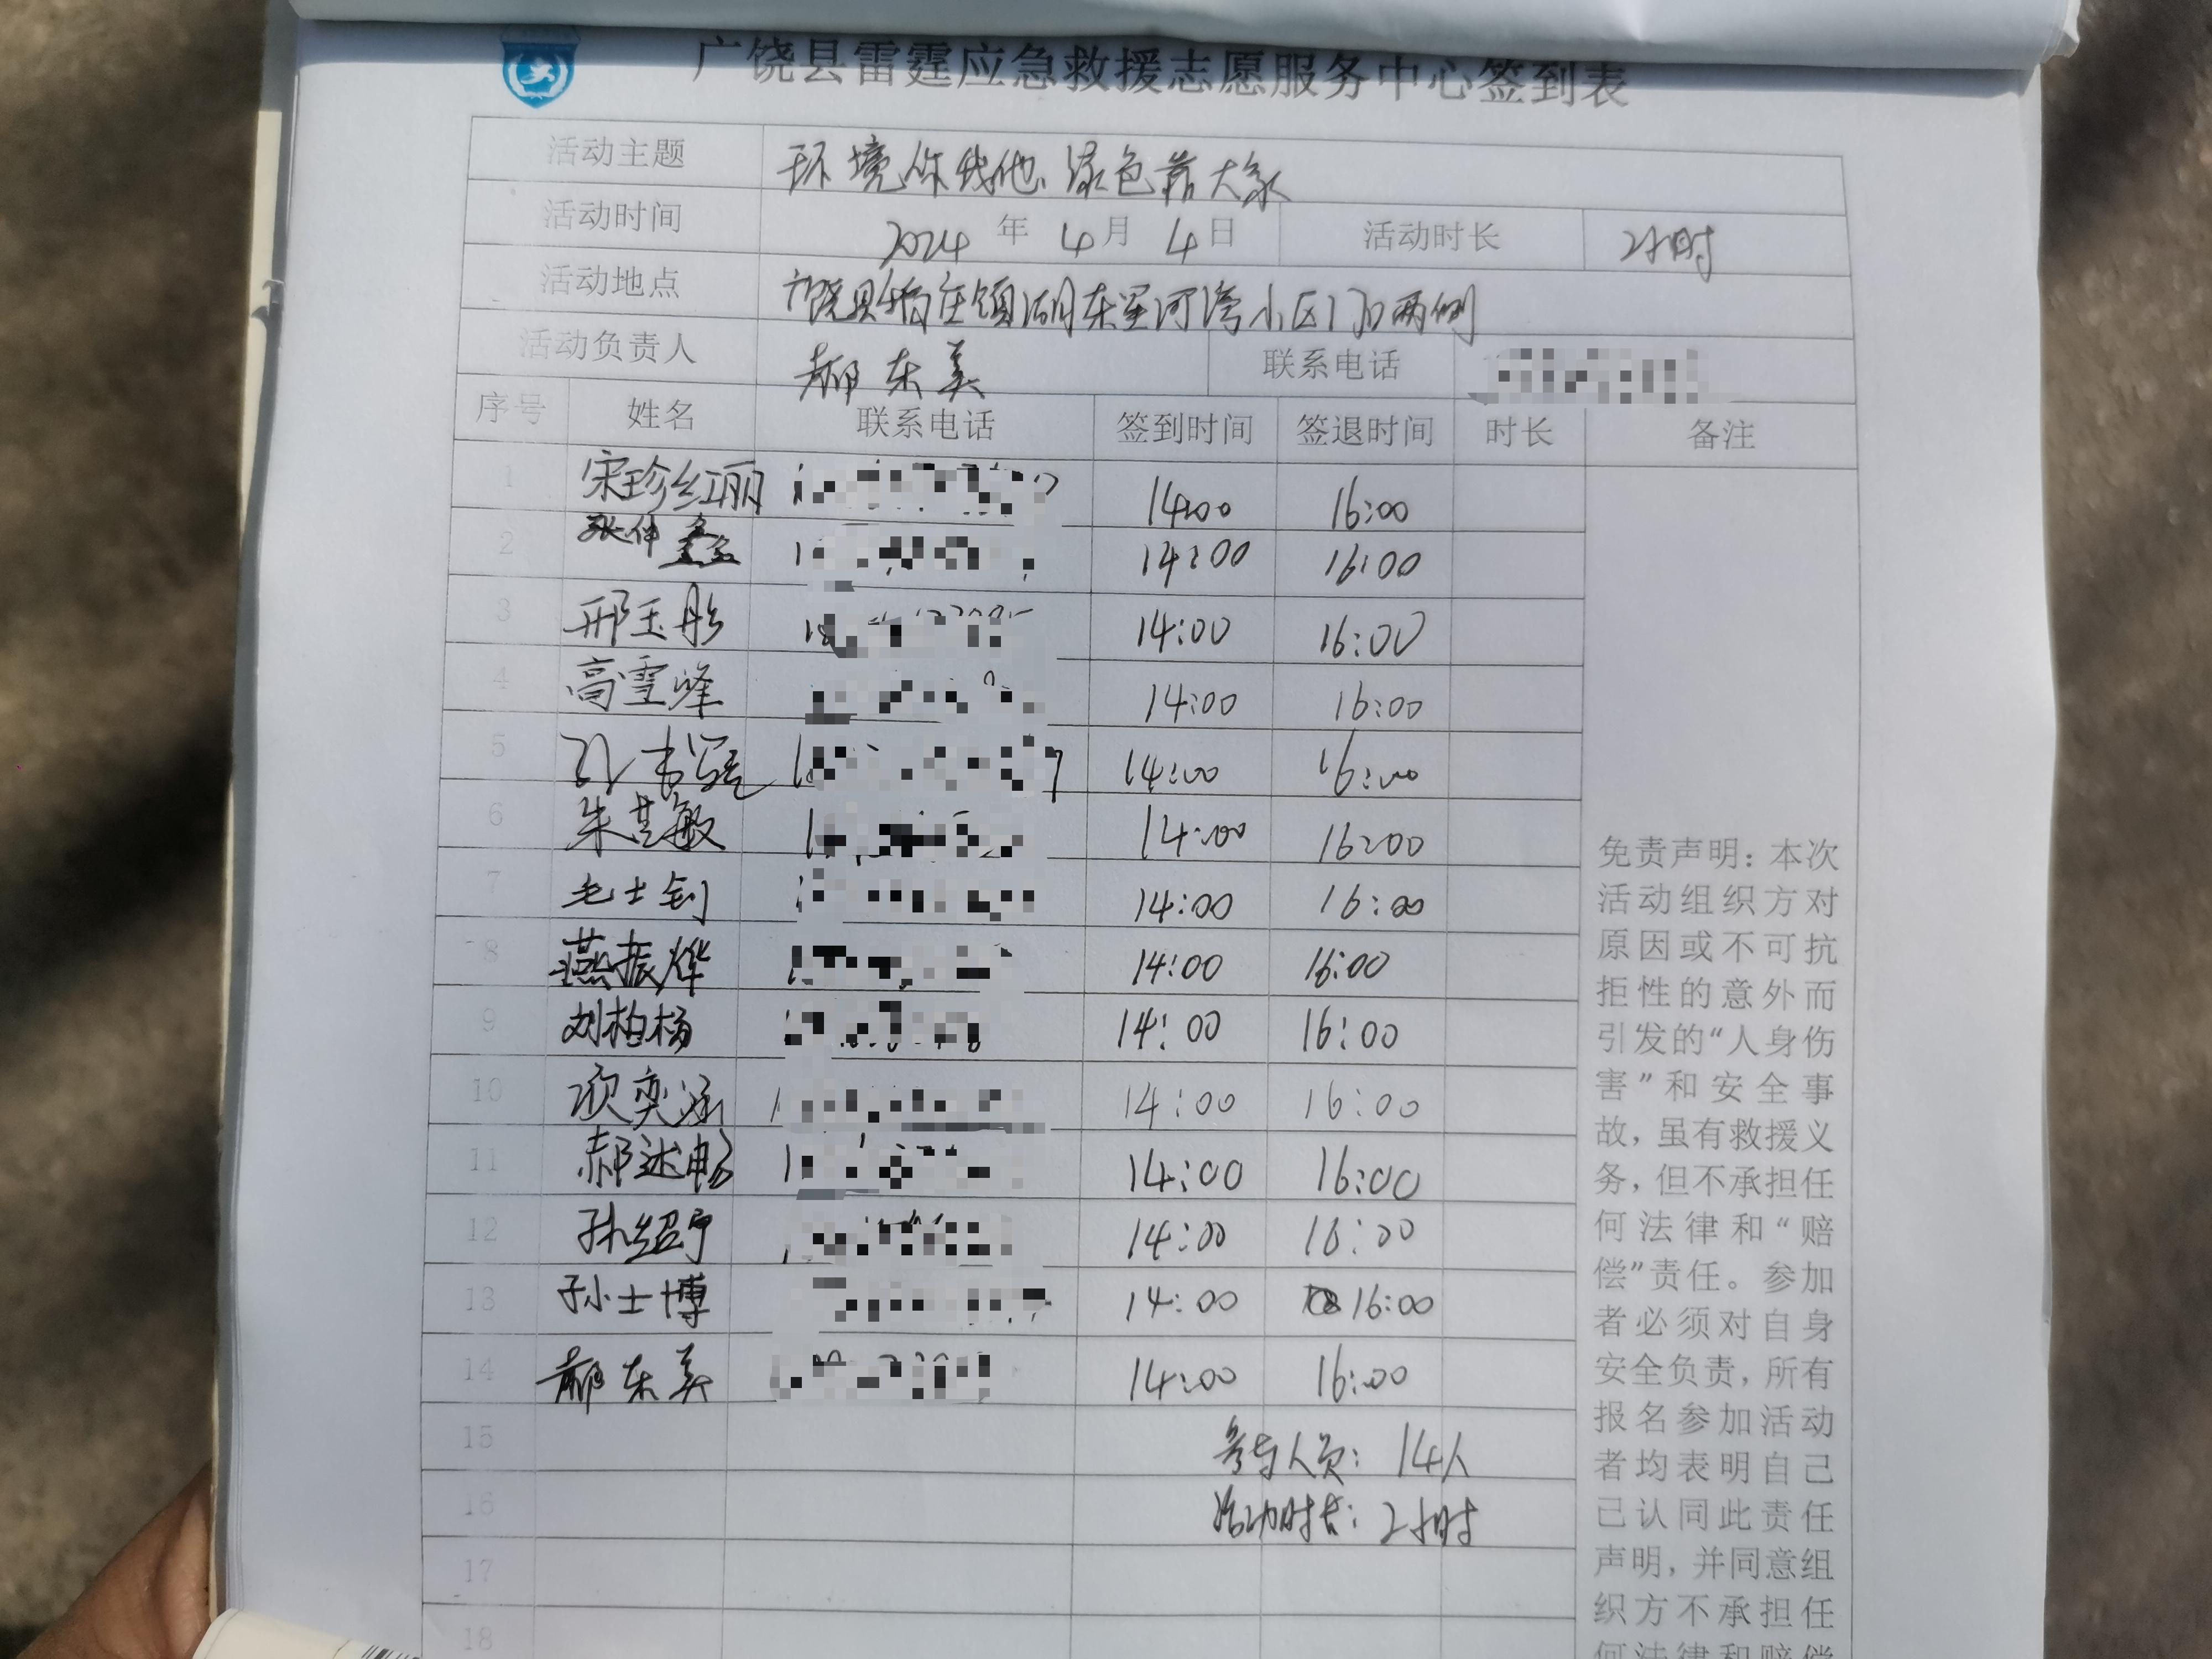 广饶县雷霆应急救援志愿服务中心签到表
活动主题 环境你我他 绿色靠大家
活动时间 2024 年 4 月 4 日 活动时长 2小时
活动地点 广饶县稻庄镇湖东星河湾小区门口两侧
活动负责人 郝东美 联系电话
序号 姓名 联系电话 签到时间 签退时间 时长 备注
1 宋珍红丽 14:00 16:00
2 张仲鑫 14:00 16:00
3 邢玉彤 14:00 16:00
4 高雪峰 14:00 16:00
5 14:00 16:00
6 朱慧敏 14:00 16:00
7 毛士钊 14:00 16:00
8 燕振烨 14:00 16:00
9 刘柏杨 14:00 16:00
10 奕涵 14:00 16:00
11 郝述畅 14:00 16:00
12 孙绍宁 14:00 16:00
13 孙士博 14:00 16:00
14 郝东美 14:00 16:00
15 参与人员：14人
16 活动时长：2小时
17
18
免责声明：本次
活动组织方对
原因或不可抗
拒性的意外而
引发的“人身伤
害”和安全事
故，虽有救援义
务，但不承担任
何法律和“赔
偿”责任。参加
者必须对自身
安全负责，所有
报名参加活动
者均表明自己
已认同此责任
声明，并同意组
织方不承担任
何法律和赔偿